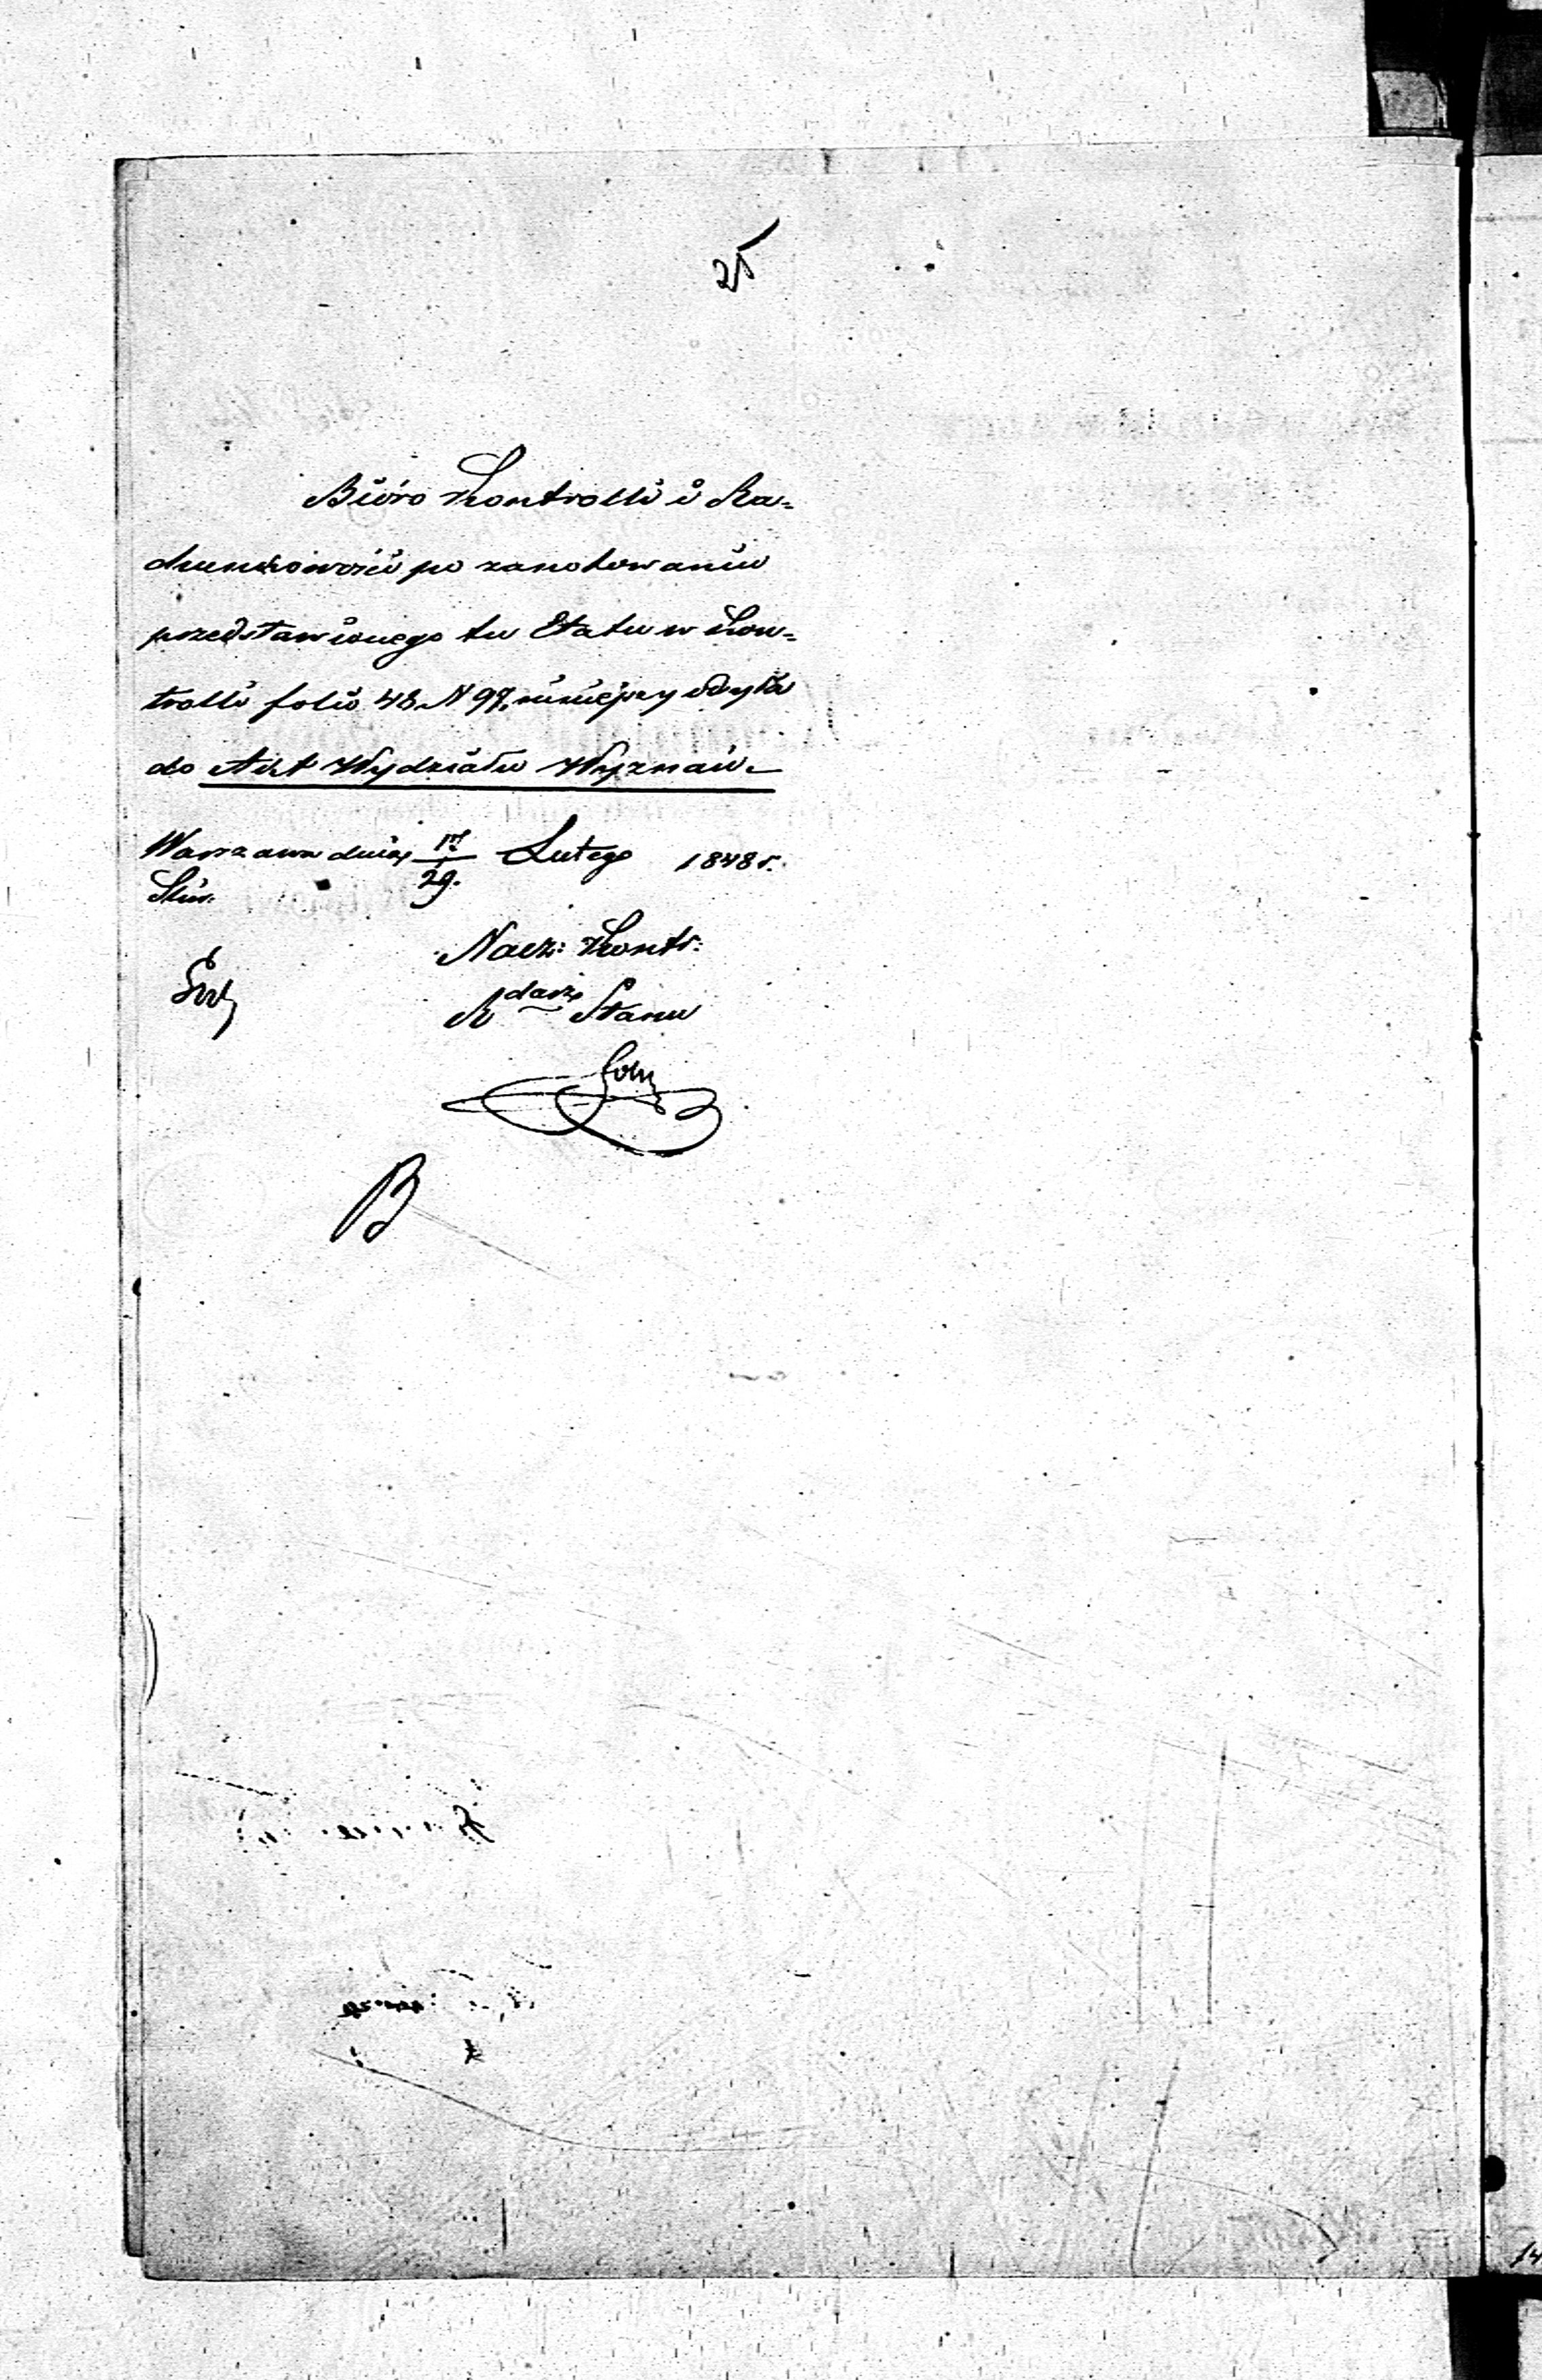 25
Biuro Kontrolli i Ra=
chunkowości po zanotowaniu
przedstawionego tu Etatu w Kon=
trolli folio 48 N 97, niniejszy odsyła
do Akt Wydziału Wyznań.
Warszawa dnia 17/29 Lutego 1848 r.
Nacz: Kontr:
Rdca Stanu
B
14